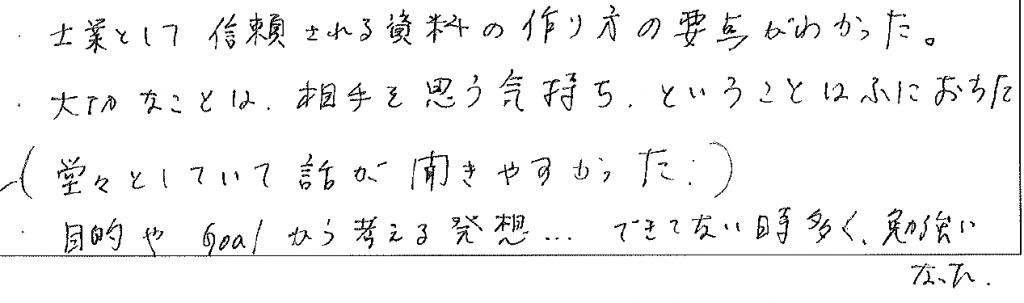 ・士業として信頼される資料の作り方の要点がわかった。
・大切なことは、相手を思う気持ち、ということはふにおちた
(堂々としていて話が聞きやすかった。)
・目的やGoalから考える発想… できてない時多く、勉強に
なった.